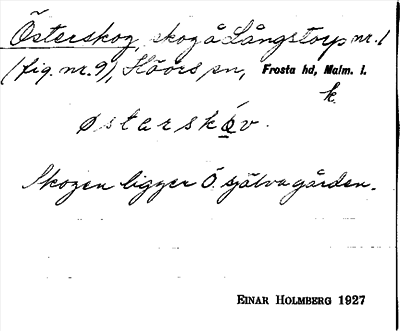 Österskog, skog å Långstorp nr. 1
(fig. nr. 9), Höörs sn, Frosta hd, Malm. l.
k.
østerskóv.
Skogen ligger Ö. själva gården.
EINAR HOLMBERG 1927